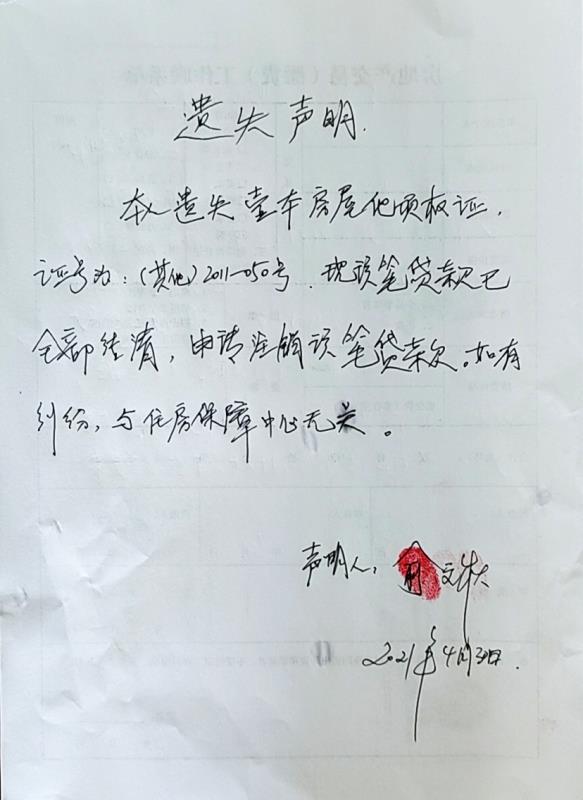 遗失声明.
本人遗失壹本房屋他项权证,
证号为:(其他)2011-050号.现该笔贷款已
全部结清,申请注销该笔贷款。如有
纠纷,与住房保障中心无关。
声明人:俞文林
2021年4月30日.